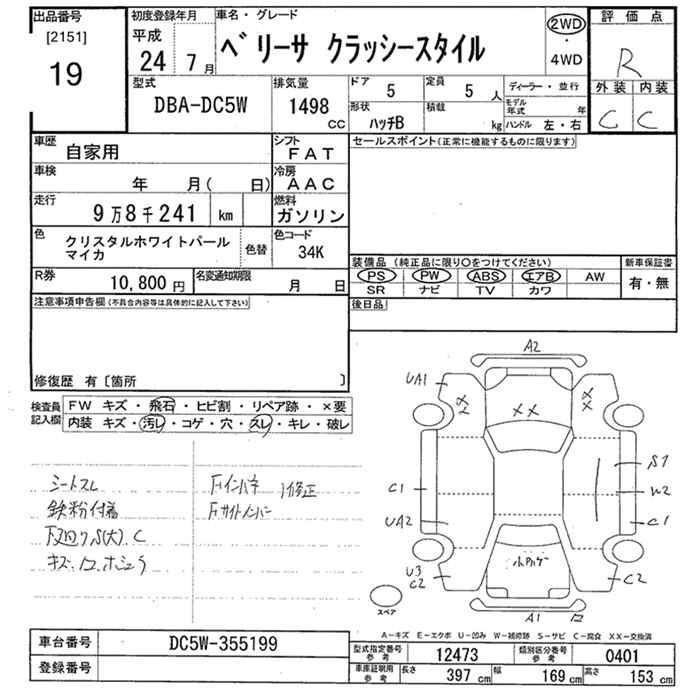 出品番号
[2151]
19
初度登録年月
平成
24 7月
車名・グレード
ベリーサ クラッシースタイル
2WD
・
4WD
評価点
R
外装 内装
C C
型式
DBA-DC5W
排気量
1498 CC
ドア 5
定員 5 人
ディーラー・並行
形状 ハッチB
積載 kg
モデル年式 年
ハンドル 左・右
車歴 自家用
シフト FAT
セールスポイント(正常に機能するものに限ります)
車検 年 月( 日)
冷房 AAC
走行 9万8千241 km
燃料 ガソリン
色 クリスタルホワイトパールマイカ
色替
色コード 34K
装備品 (純正品に限り○をつけてください)
新車保証書
PS PW ABS エアB AW
SR ナビ TV カワ
有・無
R券 10,800円
名変通知期限 月 日
後日品
注意事項申告欄(不具合内容等は具体的に記入して下さい)
修復歴 有〔箇所 〕
検査員記入欄
FW キズ・飛石・ヒビ割・リペア跡・×要
内装 キズ・汚レ・コゲ・穴・スレ・キレ・破レ
シートスレ
鉄粉付着
下廻りS(大).C
A2
UA1
XX
XX
XX
C1
UA2
S1
W2
C1
U3
C2
C2
A1
スペア
A-キズ E-エクボ U-凹み W-補修跡 S-サビ C-腐食 XX-交換済
車台番号 DC5W-355199
登録番号
型式指定番号 参考 12473
類別区分番号 参考 0401
車庫証明用 参考 長さ 397cm 幅 169cm 高さ 153cm